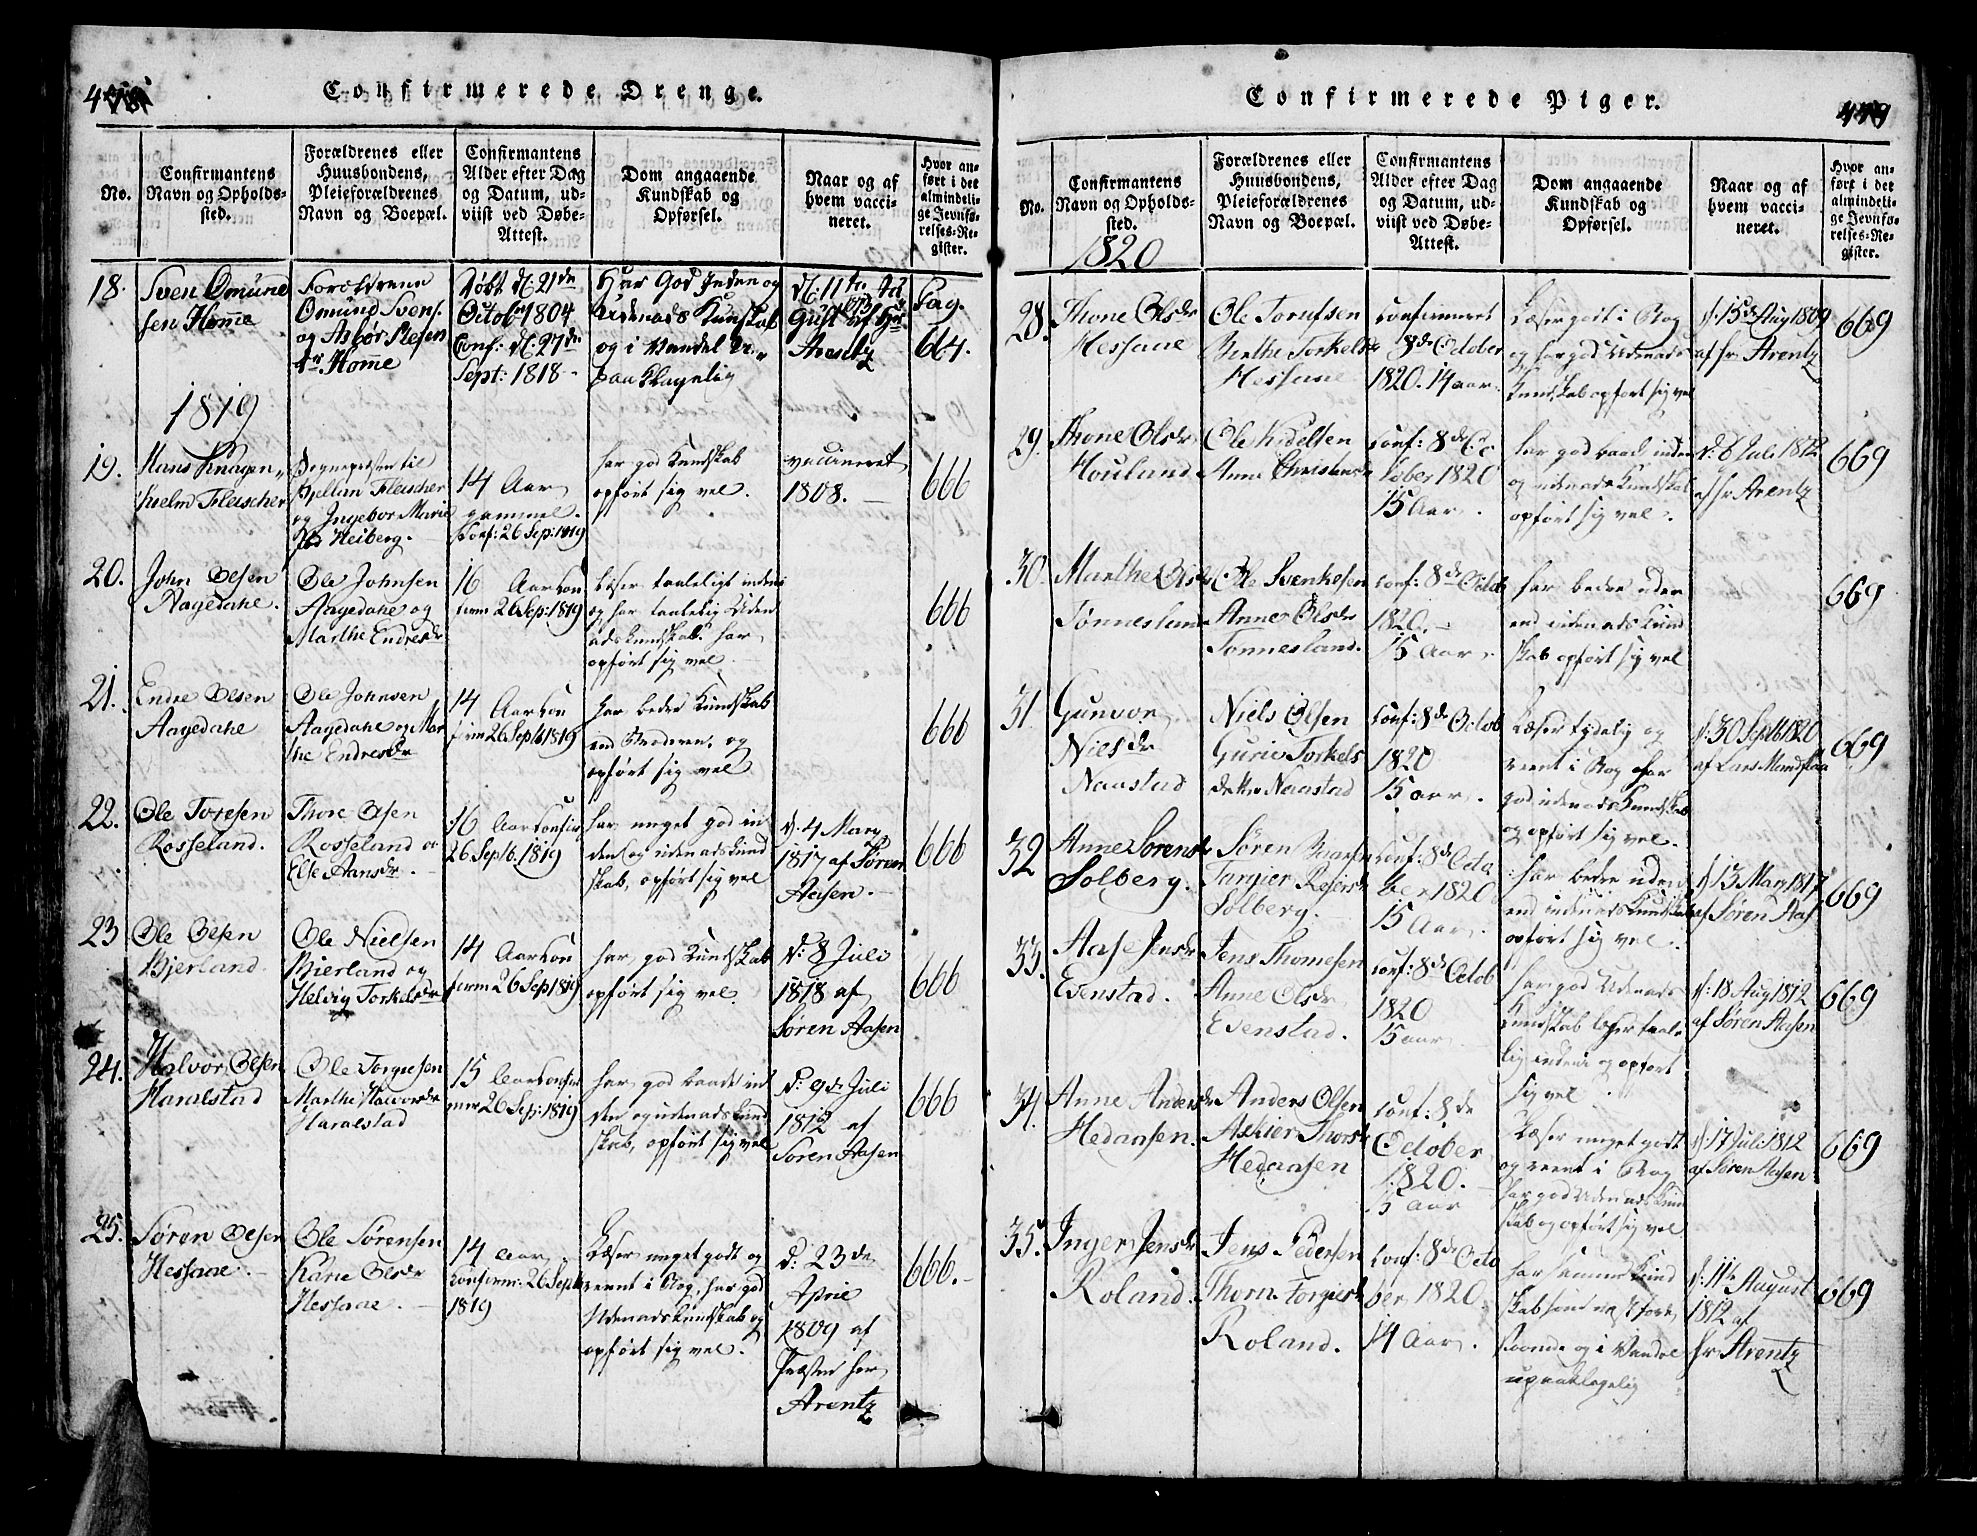 478
Confirmerede Drenge.
No.
Confirmantens
Navn og Opholds-
sted.
Forældrenes eller
Huusbondens,
Pleieforældrenes
Navn og Boepæl.
Confirmantens
Alder efter Dag
og Datum, ud-
viist ved Døbe-
Attest.
Dom angaaende
Kundskab og
Opførsel.
Naar og af
hvem vacci-
neret.
Hvor an-
ført i det
almindeli-
ge Jevnfø-
relses-Re-
gister.
18.
Sven Omune
sen Homme
Forældrene
Omund Svens.
og Asbør Olesen
dr Homme
Døbt d: 21de
Octobr 1804
Conf: d: 27de
Sept: 1818 -
Har God Inden og
Udenads Kundskab
og i Vandel U-
paaklagelig
d: 11te
Arentz
Pag.
664.
1819
19.
Hans Knagen-
hielm Fleischer
Sognepræsten til
Bjelland Fleischer
og Ingebor Marie
Heiberg.
14 Aar
gammel.
Conf: 26 Sep: 1819
har god Kundskab
opført sig vel.
vaccineret
1808.
666
20.
John Olsen
Aagedahe.
Ole Johnsen
Aagedahe og
Marthe Endresdr
16 Aar con
firm 26 Sep: 1819
læser taaleligt inden
og har taalelig Uden
adskundskab. har
opført sig vel
666
21.
Endre Olsen
Aagedahe
Ole Johnsen
Aagedahe og Mar
the Endresdr
14 Aar con
firm 26 Septb 1819
har bedre Kundskab
end Broderen, og
opført sig vel
666
22.
Ole Toresen
Rosseland.
Thore Olsen
Rosseland og
Else Aansdr.
16 Aar confir
26 Septb. 1819
har meget god in
den og udenadskund
skab, opført sig vel
d. 4 Mary
1817 af Søren
Aasen.
666
23
Ole Olsen
Bjerland.
Ole Nielsen
Bjerland og
Helvig Torkelsdr
14 Aar con
firm 26 Sep 1819
har god Kundskab
opført sig vel.
d: 8 Juli
1818 af
Søren Aasen
666
24.
Halvor Olsen
Haralstad
Ole Torgiesen
Marthe Halvorsdr
Haralstad
15 Aar confir
mer 26 Sep: 1819
har god baade in
den og udenadskund
skab, opført sig vel
d: 9de Juli
1812 af
Søren Aasen
666
25.
Søren Olsen
Hessaae.
Ole Sørensen
Karie Olsdr
Hessaae.
14 aar
confirm: 26 Septb
1819
Læser meget godt og
reent i Bog, har god
Udenadskundskab og
opført sig vel.
d: 23de
Aprie
1809 af
Præsten her
Arentz
666.
Confirmerede Piger.
479
No.
Confirmantens
Navn og Opholds-
sted.
1820
Forældrenes eller
Huusbondens,
Pleieforældrenes
Navn og Boepæl.
Confirmantens
Alder efter Dag
og Datum, ud-
viist ved Døbe-
Attest.
Dom angaaende
Kundskab og
Opførsel.
Naar og af
hvem vacci-
neret.
Hvor an-
ført i det
almindeli-
ge Jevnfø-
relses-Re-
gister.
28.
Thone Olsdr
Hessaae
Ole Torufsen
Berthe Torkelsdr
Hessaae
confirmeret
8de October
1820. 14 aar.
Læser godt i Bog
og har god Udenads
Kundskab opført sig vel
d: 15de Aug 1809
af hr Arentz
669
29.
Thone Olsdr
Houland
Ole Kidelsen
Anne Christensdr
conf: 8de Oc
tober 1820
15 Aar.
har god baade inden
og udenads Kundskab
opført sig vel.
d. 8 Juli 1812
af hr Arentz
669
30.
Marthe Olsdr
Tønneslan
Ole Svenkesen
Anne Olsdr
Tonnesland.
conf: 8de Octob
1820.
15 Aar.
har bedre uden
end indenadskund
skab opført sig vel
669
31
Gunvor
Nielsdr
Naastad
Niels Olsen
Gurie Torkels
datter Naastad
conf: 8de Octob
1820
15 aar.
Læser tydelig og
reent i Bog har
god udenadskundskab
og opført sig vel.
d: 30 Septb 1820
af Lars Mandflaa
669
32
Anne Sørensdr
Solberg.
Søren
Torgier Reiersdr
Solberg.
conf: 8de Octo
ber 1820
15 Aar.
har bedre uden
end indenadskundskab
opført sig vel.
d 13 Mary 1817
af Søren Aas
669
33.
Aase Jensdr
Evenstad.
Jens Thomesen
Anne Olsdr
Evenstad.
conf: 8de Octob
1820
15 aar
har god Udenads
Kundskab læser taale
lig inden og opført
sig vel
d: 18 Aug 1812
af Søren Aasen
669
34.
Anne Andersdr
Hedaasen.
Anders Olsen
Askier Thorsdr
Hedaasen
conf: 8de
October
1820.
15 Aar
Læser meget godt
og reent i Bog
har god Udenadskund
skab og opført sig vel
d: 17 Juli 1812
af Søren Aasen
669
35.
Inger Jensdr
Roland.
Jens Pedersen
Thorn Torgiersdr
Roland.
conf: 8de Octo
ber 1820.
14 Aar.
har samme Kund
skab som næstfore
staaende og i Vandel
upaaklagelig
d: 11te August
1812 af
hr Arentz
669